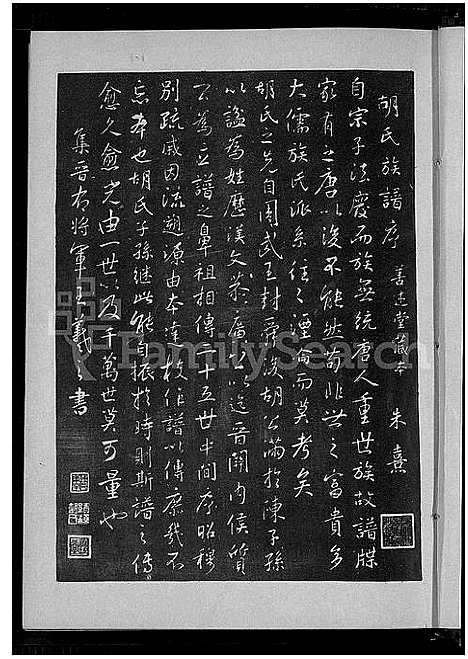 胡氏族譜序 善述堂藏本 朱熹
自宗子法廢而族無統唐人重世族故譜牒
家有之唐以後不能然苟非世之富貴多
大儒族氏派系往之湮淪而莫考矣
胡氏之先自周武王封舜後胡公滿於陳子孫
以謚為姓歷漢文恭廣公以迄晉關內侯質
公為立譜之鼻祖相傳二十五世中間序昭穆
別疏戚因流遡源由本達枝作譜以傳庶幾不
忘本也胡氏子孫繼此能自振於時則斯譜之傳
愈久愈光由一世以及千萬世莫可量也
集晉右將軍王羲之書
FamilySearch